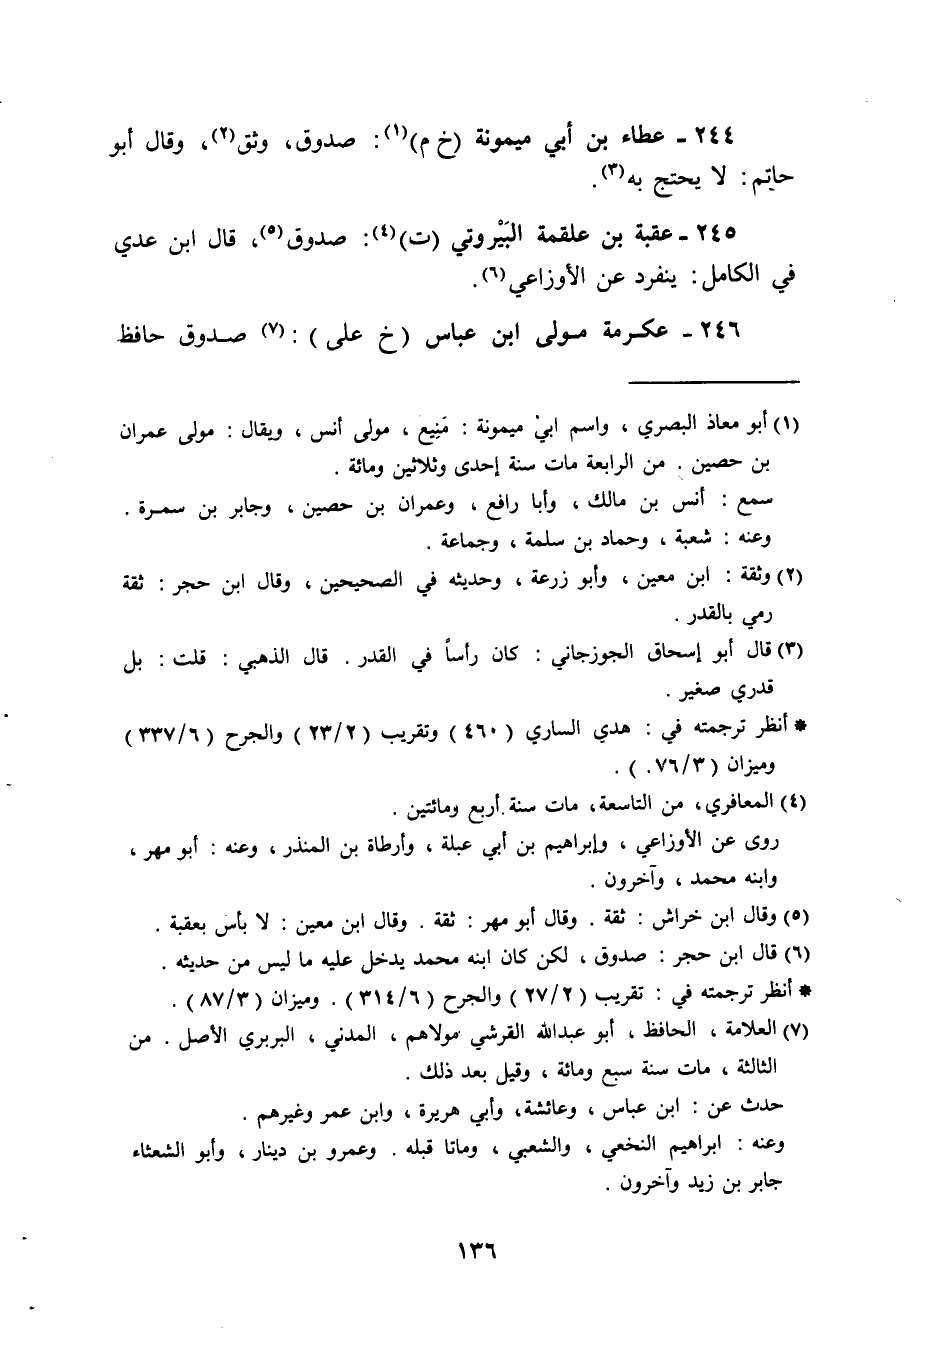 ٢٤٤ ـ عطاء بن أبي ميمونة (خ م)(١): صدوق، وثق(٢)، وقال أبو
حاتم: لا يحتج به(٣).
٢٤٥ ـ عقبة بن علقمة البَيْروتي (ت)(٤): صدوق(٥)، قال ابن عدي
في الكامل: ينفرد عن الأوزاعي(٦).
٢٤٦ ـ عكرمة مولى ابن عباس (خ على) :(٧) صدوق حافظ
(١) أبو معاذ البصري ، واسم ابي ميمونة : مَنِيع ، مولى أنس ، ويقال : مولى عمران
بن حصين . من الرابعة مات سنة إحدى وثلاثين ومائة .
سمع : أنس بن مالك ، وأبا رافع ، وعمران بن حصين ، وجابر بن سمرة .
وعنه : شعبة ، وحماد بن سلمة ، وجماعة .
(٢) وثقة : ابن معين ، وأبو زرعة ، وحديثه في الصحيحين ، وقال ابن حجر : ثقة
رمي بالقدر .
(٣) قال أبو إسحاق الجوزجاني : كان رأساً في القدر . قال الذهبي : قلت : بل
قدري صغير .
* أنظر ترجمته في : هدي الساري ( ٤٦٠ ) وتقريب ( ٢٣/٢ ) والجرح ( ٣٣٧/٦ )
وميزان ( ٧٦/٣. ) .
(٤) المعافري، من التاسعة، مات سنة أربع ومائتين .
روى عن الأوزاعي ، وإبراهيم بن أبي عبلة ، وأرطاة بن المنذر ، وعنه : أبو مهر ،
وابنه محمد ، وآخرون .
(٥) وقال ابن خراش : ثقة . وقال أبو مهر : ثقة . وقال ابن معين : لا بأس بعقبة .
(٦) قال ابن حجر : صدوق ، لكن كان ابنه محمد يدخل عليه ما ليس من حديثه .
* أنظر ترجمته في : تقريب ( ٢٧/٢ ) والجرح ( ٣١٤/٦ ) . وميزان ( ٨٧/٣ ) .
(٧) العلامة ، الحافظ ، أبو عبدالله القرشي مولاهم ، المدني ، البربري الأصل . من
الثالثة ، مات سنة سبع ومائة ، وقيل بعد ذلك .
حدث عن : ابن عباس ، وعائشة، وأبي هريرة ، وابن عمر وغيرهم .
وعنه : ابراهيم النخعي ، والشعبي ، وماتا قبله . وعمرو بن دينار ، وأبو الشعثاء
جابر بن زيد وآخرون .
١٣٦